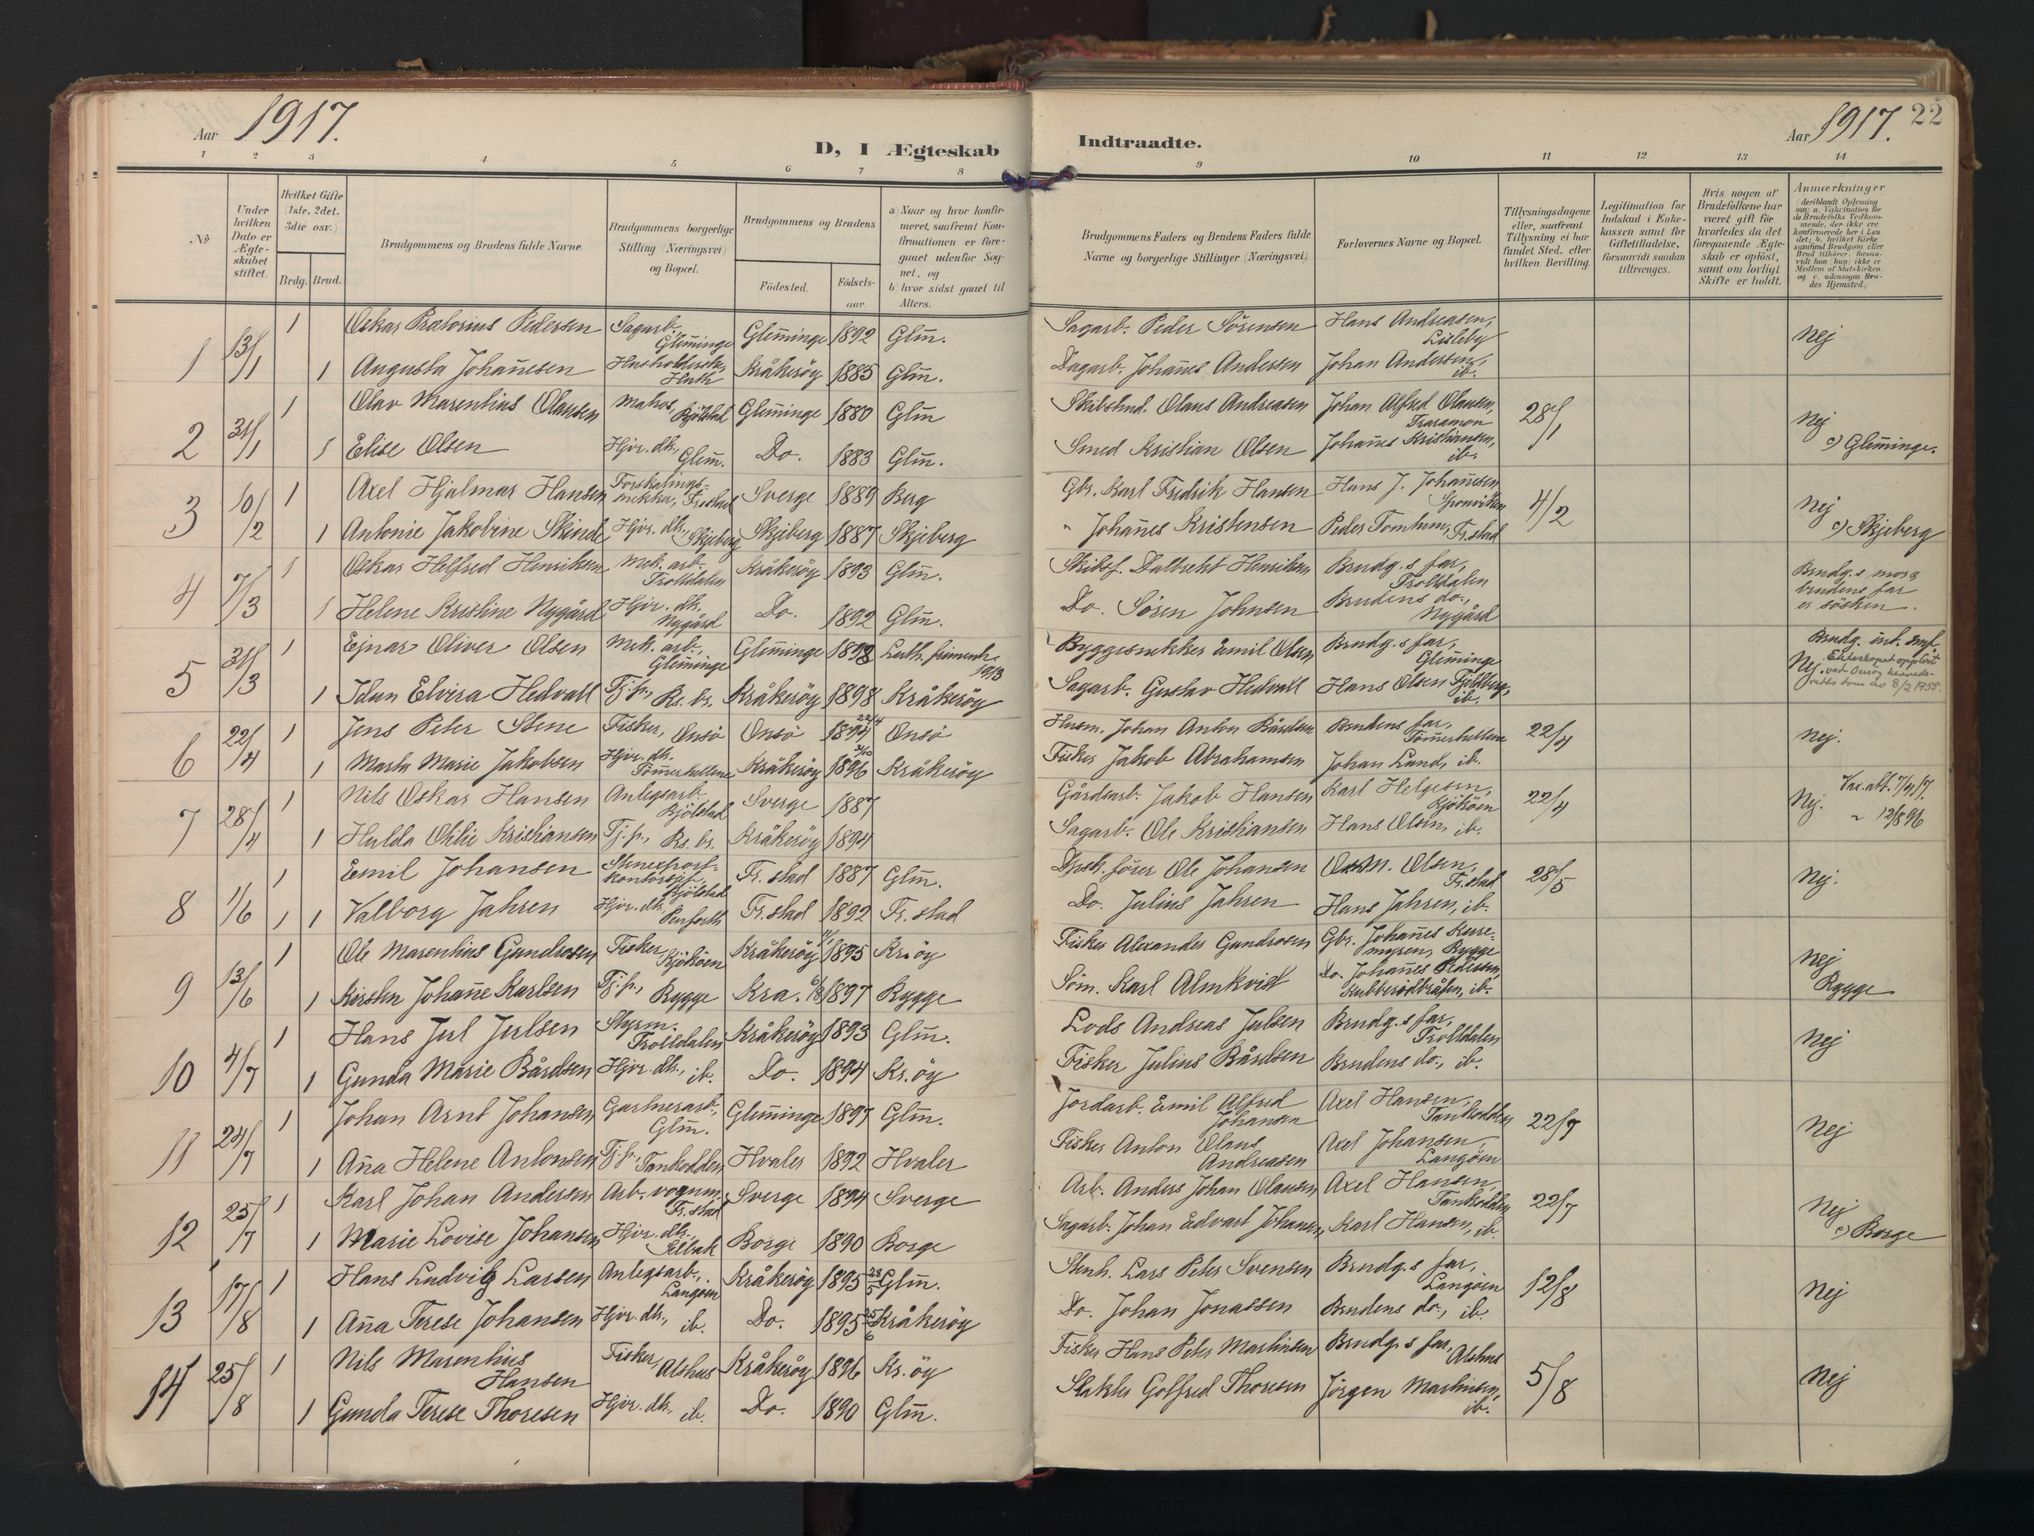 Aar 1917.
D, I Ægteskab Indtraadte.
Aar 1917. 22
1 2 3 4 5 6 7 8 9 10 11 12 13 14
No
Under hvilken Dato er Ægteskabet stiftet.
Hvilket Gifte (1ste, 2det, 3die osv.)
Brdg. Brud.
Brudgommens og Brudens fulde Navne
Brudgommens borgerlige Stilling (Næringsvei) og Bopæl.
Brudgommens og Brudens
Fødested. Fødselsaar.
a) Naar og hvor konfirmeret, saafremt Konfirmationen er foregaaet udenfor Sognet, og
b) hvor sidst gaaet til Alters.
Brudgommens Faders og Brudens Faders fulde Navne og borgerlige Stillinger (Næringsvei)
Forlovernes Navne og Bopæl.
Tillysningsdagene eller, saafremt Tillysning ei har fundet Sted, efter hvilken Bevilling.
Legitimation for Indskud i Enkekassen samt for Giftetilladelse, forsaavidt saadan tiltrænges.
Hvis nogen af Brudefolkene har været gift før hvorledes da det foregaaende Ægteskab er opløst, samt om lovligt Skifte er holdt.
Anmærkninger (deriblandt Oplysning om: a. Vakcination for de Brudefolks Vedkommende, der ikke ere konfirmerede her i Landet; b. hvilket Kirkesamfund Brudgom eller Brud tilhører, forsaavidt han (hun) ikke er Medlem af Statskirken, og c. udensogns Brudes Hjemsted.)
1 13/1 1 Oskar Prætorius Pedersen Sagarb., Glem̄inge Glem̄inge 1892 Glm̄. Sagarb. Peder Sörensen Hans Andreasen, Lisleby Nej
1 Augusta Johan̄esen Husholderske, Kråkeröy 1885 Glm̄. Dagarb. Johan̄es Andersen Johan Andersen, ib.
2 31/1 1 Olav Marentius Olausen Kjölstad Glem̄inge 1880 Glm̄ Skibstmd. Olaus Andreasen Johan Alfred Olausen, 28/1 Nej
1 Elise Olsen Hjv. dtr., Glem̄. Do. 1883 Glm̄. Smed Kristian Olsen Johan̄es Kristiansen, ib. c) Glem̄inge.
3 10/2 1 Axel Hjalmar Hansen Fr.stad Sverge 1889 Berg Gbr. Karl Fredrik Hansen Hans J. Johan̄esen, Sponviken 4/2 Nej
1 Antonie Jakobine Hjv. dtr., Skjeberg Skjeberg 1887 Skjeberg " Johan̄es Kristensen Peder Tomtum, Fr.stad c) Skjeberg
4 7/3 1 Oskar Helfred Henriksen Mek. arb. Trolldalen Kråkeröy 1893 Glm̄. Skibsf. Dalbrekt Henriksen Brudg.s far, Trolldalen Brudg.s mor og brudens far er søsken.
1 Helene Kristine Nygård Hjv. dtr. Nygård Do. 1892 Glm̄. Do. Sören Johnsen Brudens do., Nygård
5 31/3 1 Ejnar Oliver Olsen Mek. arb., Glem̄inge Glem̄inge 1892 Luth. frimenh. 1913 Byggesnekker Emil Olsen Brudg.s far, Glem̄inge Nej
1 Idun Elvira Hedvall Tj.p., Ks. br. Kråkeröy 1898 Kråkeröy Sagarb. Gustav Hedvall Hans Olsen Fjeldberg, ib. Ekteskapet oppløst ved Onsøy herredsretts dom av 8/2 1955.
6 22/4 1 Jens Peter Stene Fisker, Onsö Onsö 22/4 1894 Onsö Husm. Johan Anton Bårdsen Brudens far, Töm̄erhellene 22/4 Nej.
1 Marta Marie Jakobsen Hjv. dtr. Töm̄erhellene Kråkeröy 31/10 1896 Kråkeröy Fisker Jakob Abrahamsen Johan Lund, ib.
7 28/4 1 Nils Oskar Hansen Anlegsarb. Kjölstad Sverge 1887 Gårdsarb. Jakob Hansen Karl Helgesen, Kjököen 22/4 Nej. Vax.att. 7/4 17.
1 Hulda Otilie Kristiansen Tj.p., Ks. br. Kråkeröy 1894 Sagarb. Ole Kristiansen Hans Olsen, ib. " 12/8 96
8 1/6 1 Emil Johansen Stenexport- kontorsjef, Kjölstad Fr.stad 1887 Glm̄. Dpsk. förer Ole Johansen Olsen, Fr.stad 28/5 Nej.
1 1 Valborg Jahren Hjv. dtr. Fr.stad 1892 Fr.stad Do. Julius Jahren Hans Jahren, ib.
9 13/6 1 Ole Marentius Gundrosen Fisker Kjököen Kråkeröy 1895 Kr.öy Fisker Alexander Gundrosen Gbr. Johan̄es Kure- myren, Rygge Nej
1 Kirsten Johan̄e Karlsen Tj.p., Rygge Kra. 6/8 1897 Rygge Söm. Karl Almkvist Do. Johan̄es Pedersen, Stubberödbråten, ib. Rygge
10 4/7 1 Hans Jul Julsen Styrm. Trolldalen Kråkeröy 1893 Glm̄. Lods Andreas Julsen Brudg.s far, Trolldalen Nej
1 Gunda Marie Bårdsen Hjv. dtr., ib. Do. 1894 Kr.öy Fisker Julius Bårdsen Brudens do., ib.
11 24/7 1 Johan Arnt Johansen Gartnerarb., Glm̄. Glem̄inge 1897 Glm̄. Jordarb. Emil Alfred Johansen Axel Hansen, Tankodden 22/7 Nej
1 An̄a Helene Antonsen Tj.p., Tankodden Hvaler 1892 Hvaler Fisker Anton Olaus Andreasen Axel Johansen, Langöen
12 25/7 1 Karl Johan Andersen Arb. vognm. Fr.stad Sverge 1894 Sverge Arb. Anders Johan Olausen Axel Hansen, Tankodden 22/7 Nej
1 Marie Lovise Johansen Hjv. dtr., Selbak Borge 1890 Borge Sagarb. Johan Edvart Johansen, Karl Hansen, ib. c) Borge
13 17/8 1 Hans Ludvig Larsen Anlegsarb., Langöen Kråkeröy 1895 23/5 Glm̄. Stenh. Lars Peter Svensen Brudg.s far, Langöen 12/8 Nej
1 An̄a Terese Johansen Hjv. dtr., ib. Do. 1895 25/6 Kråkeröy Do. Johan Jonassen Brudens do., ib.
14 25/8 1 Nils Marentius Hansen Fisker, Alshus Kråkeröy 1896 Kr.öy Fisker Hans Peter Martinsen Brudg.s far, Alshus 5/8 Nej
1 Gunda Terese Thoresen Hjv. dtr., ib. Do. 1890 Glm̄. Slakter Golfred Thoresen Jörgen Martinsen, ib.